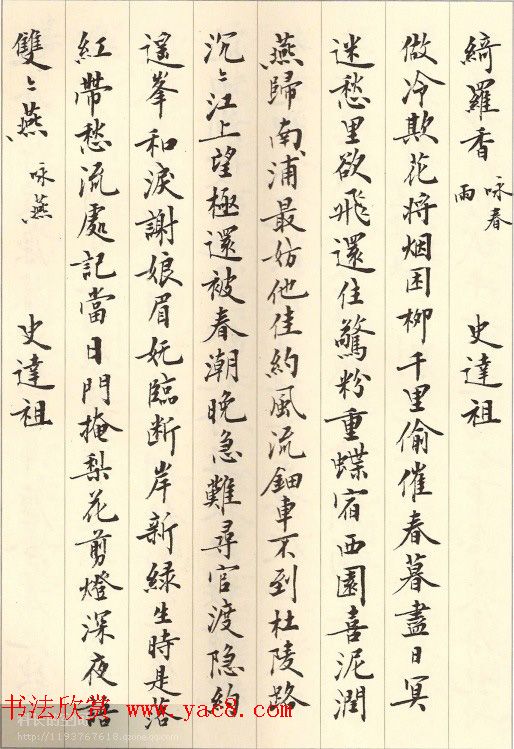 綺羅香 咏春雨 史達祖
做冷欺花将烟困柳千里偷催春暮盡日冥
迷愁里欲飛還住驚粉重蝶宿西園喜泥潤
燕歸南浦最妨他佳約風流鈿車不到杜陵路
沉〻江上望極還被春潮晚急難尋官渡隐約
遥峯和淚謝娘眉妩臨断岸新緑生時是落
紅帶愁流處記當日門掩梨花剪燈深夜語
雙〻燕 咏燕 史達祖
书法欣赏 www.yac8.com
http://1193767618.qzone.qq.com